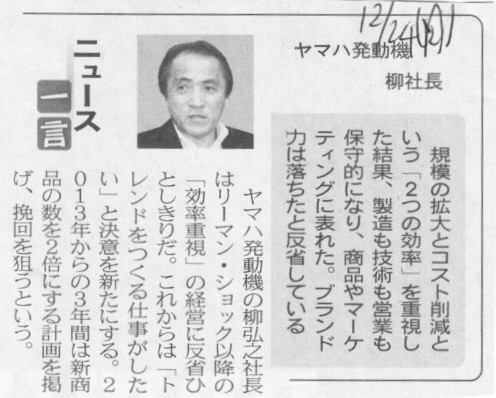 12/24(月)
ヤマハ発動機
柳社長
規模の拡大とコスト削減と
いう「2つの効率」を重視し
た結果、製造も技術も営業も
保守的になり、商品やマーケ
ティングに表れた。ブランド
力は落ちたと反省している
ニュース
一言
ヤマハ発動機の柳弘之社長
はリーマン・ショック以降の
「効率重視」の経営に反省ひ
としきりだ。これからは「ト
レンドをつくる仕事がした
い」と決意を新たにする。2
013年からの3年間は新商
品の数を2倍にする計画を掲
げ、挽回を狙うという。